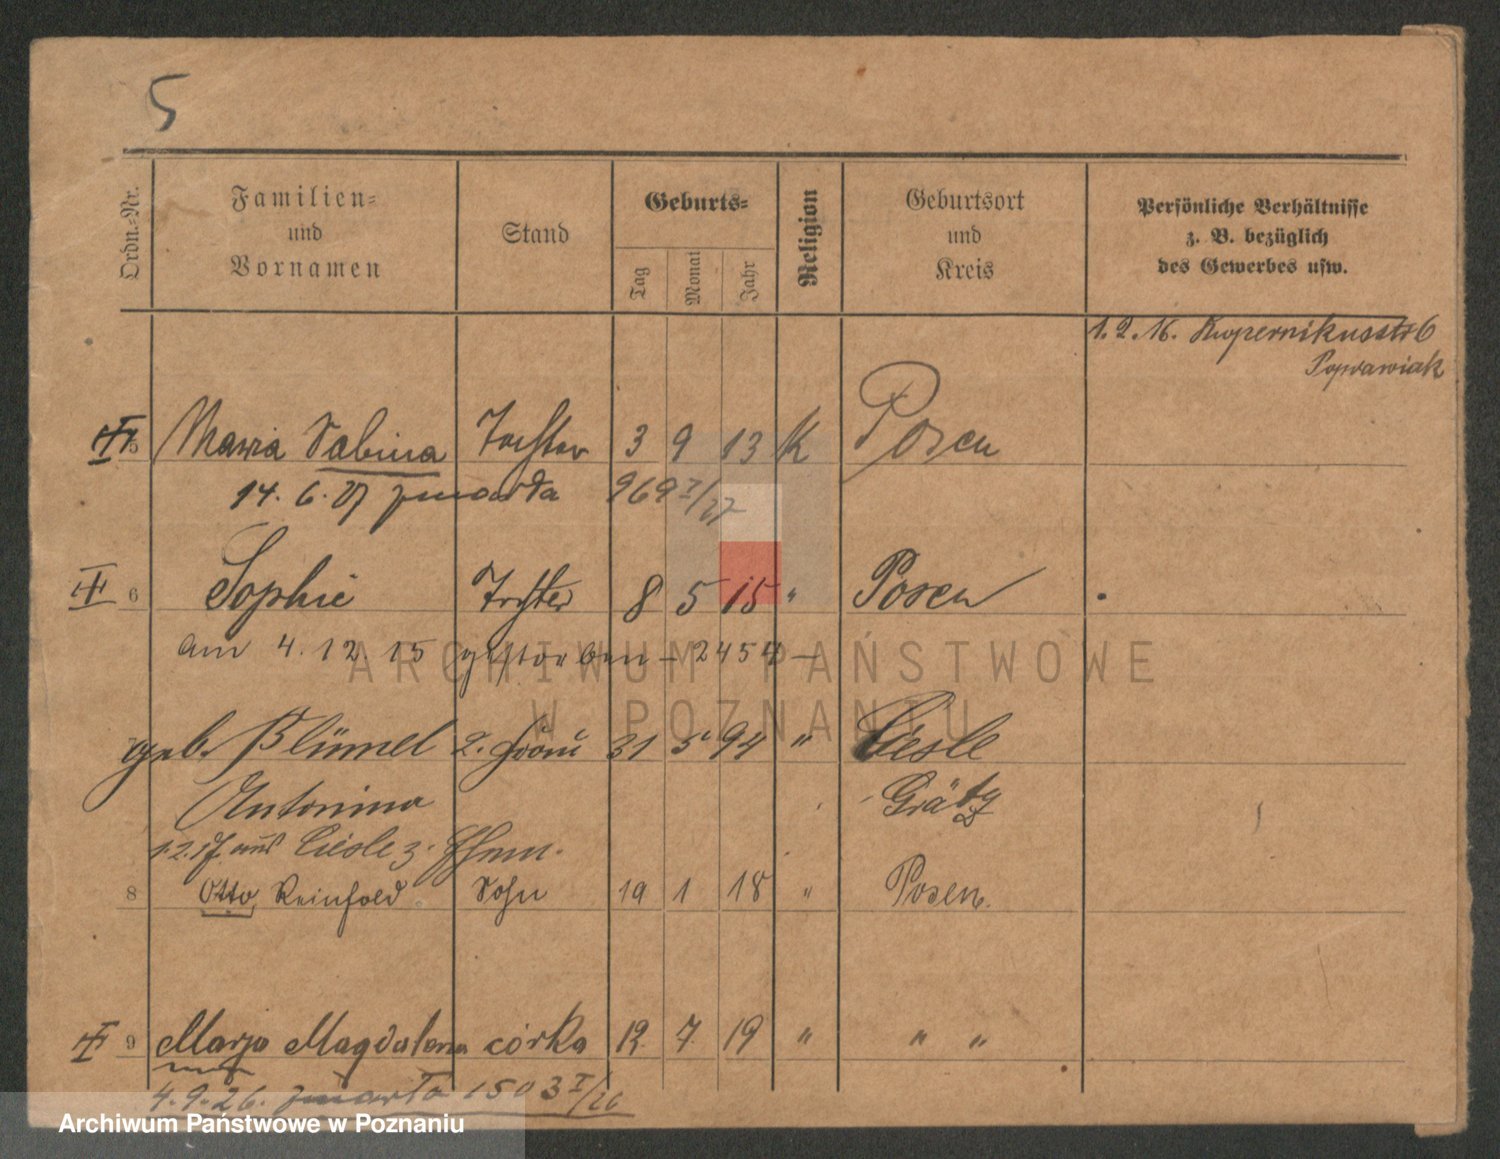 5
Ordn.-Nr.
Familien-
und
Vornamen
Stand
Geburts-
Tag Monat Jahr
Religion
Geburtsort
und
Kreis
Persönliche Verhältnisse
z. B. bezüglich
des Gewerbes usw.
1.2.16. Kopernikusstr 6
Poprawiak
5 Maria Sabina Tochter 3 9 13 K Posen
14. 6. 27 zmarła 969 I/27
6 Sophie Tochter 8 5 15 " Posen
am 4. 12 15 gestorben - 2454 -
geb. Blümel 2. Frau 31 5 94 " Ciesle
Antonina Grätz
1.2.17. aus Ciesle z. Ehem.
8 Otto Reinhold Sohn 19 1 18 " Posen.
9 Marja Magdalena córka 12. 7. 19 " " "
4.9.26. zmarła 1503 I/26
ARCHIWUM PAŃSTWOWE
W POZNANIU
Archiwum Państwowe w Poznaniu